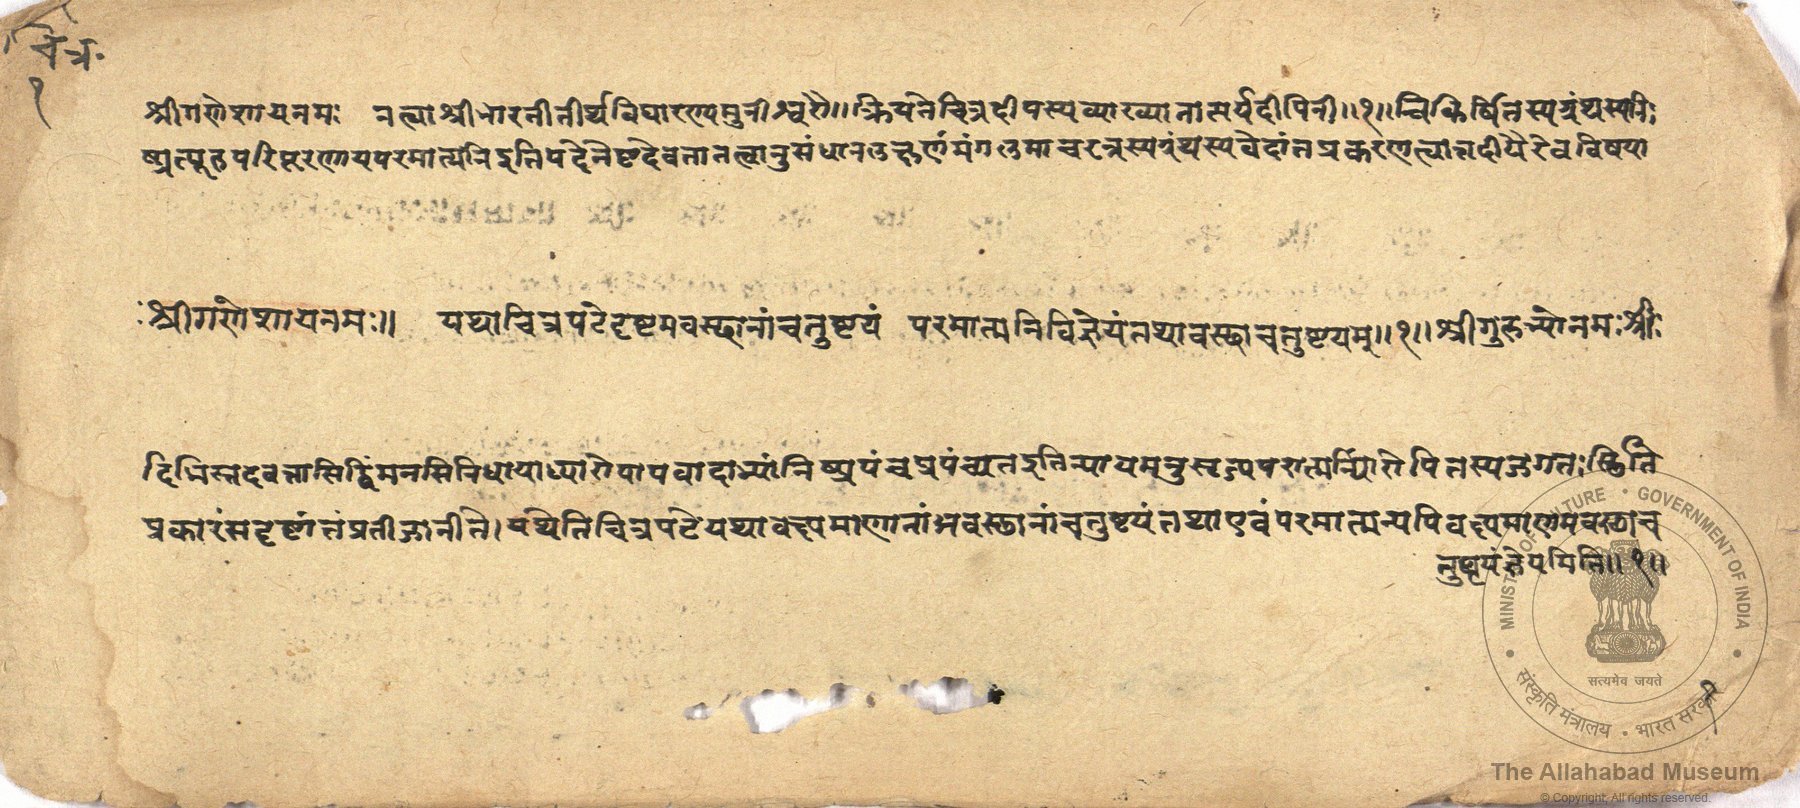 चित्र.
१
श्रीगणेशायनमः नत्वाश्रीभारतीतीर्थविद्यारण्यमुनीश्वरौ॥ क्रियतेचित्रदीपस्यव्याख्यातात्पर्यदीपिनी॥१॥ चिकीर्षितस्यग्रंथस्यनि
ष्प्रत्यूहपरिपूरणायपरमात्मनिइतिपदेनेष्टदेवतातत्वानुसंधानलक्षणंमंगलमाचरन्नस्यग्रंथस्यवेदांतप्रकरणत्वात्तदीयैरेवविषया
श्रीगणेशायनमः॥ यथाचित्रपटेदृष्टमवस्थानांचतुष्टयं परमात्मनिविज्ञेयंतथावस्थाचतुष्टयम्॥१॥ श्रीगुरुभ्योनमःश्रीः
दिभिस्तद्वत्तासिद्धिंमनसिनिधायाध्यारोपापवादाभ्यांनिष्प्रपंचप्रपंच्यतइतिन्यायमनुसृत्यपरात्मन्यारोपितस्यजगतःस्थिति
प्रकारंसदृष्टांतंप्रतीजानीते। यथेतिचित्रपटेयथावक्ष्यमाणानांअवस्थानांचतुष्टयंतथाएवंपरमात्मन्यपिवक्ष्यमाणमवस्थाच
तुष्टयंज्ञेयमिति॥१॥
MINISTRY OF CULTURE • GOVERNMENT OF INDIA
सत्यमेव जयते
संस्कृति मंत्रालय • भारत सरकार
The Allahabad Museum
© Copyright: All rights reserved.